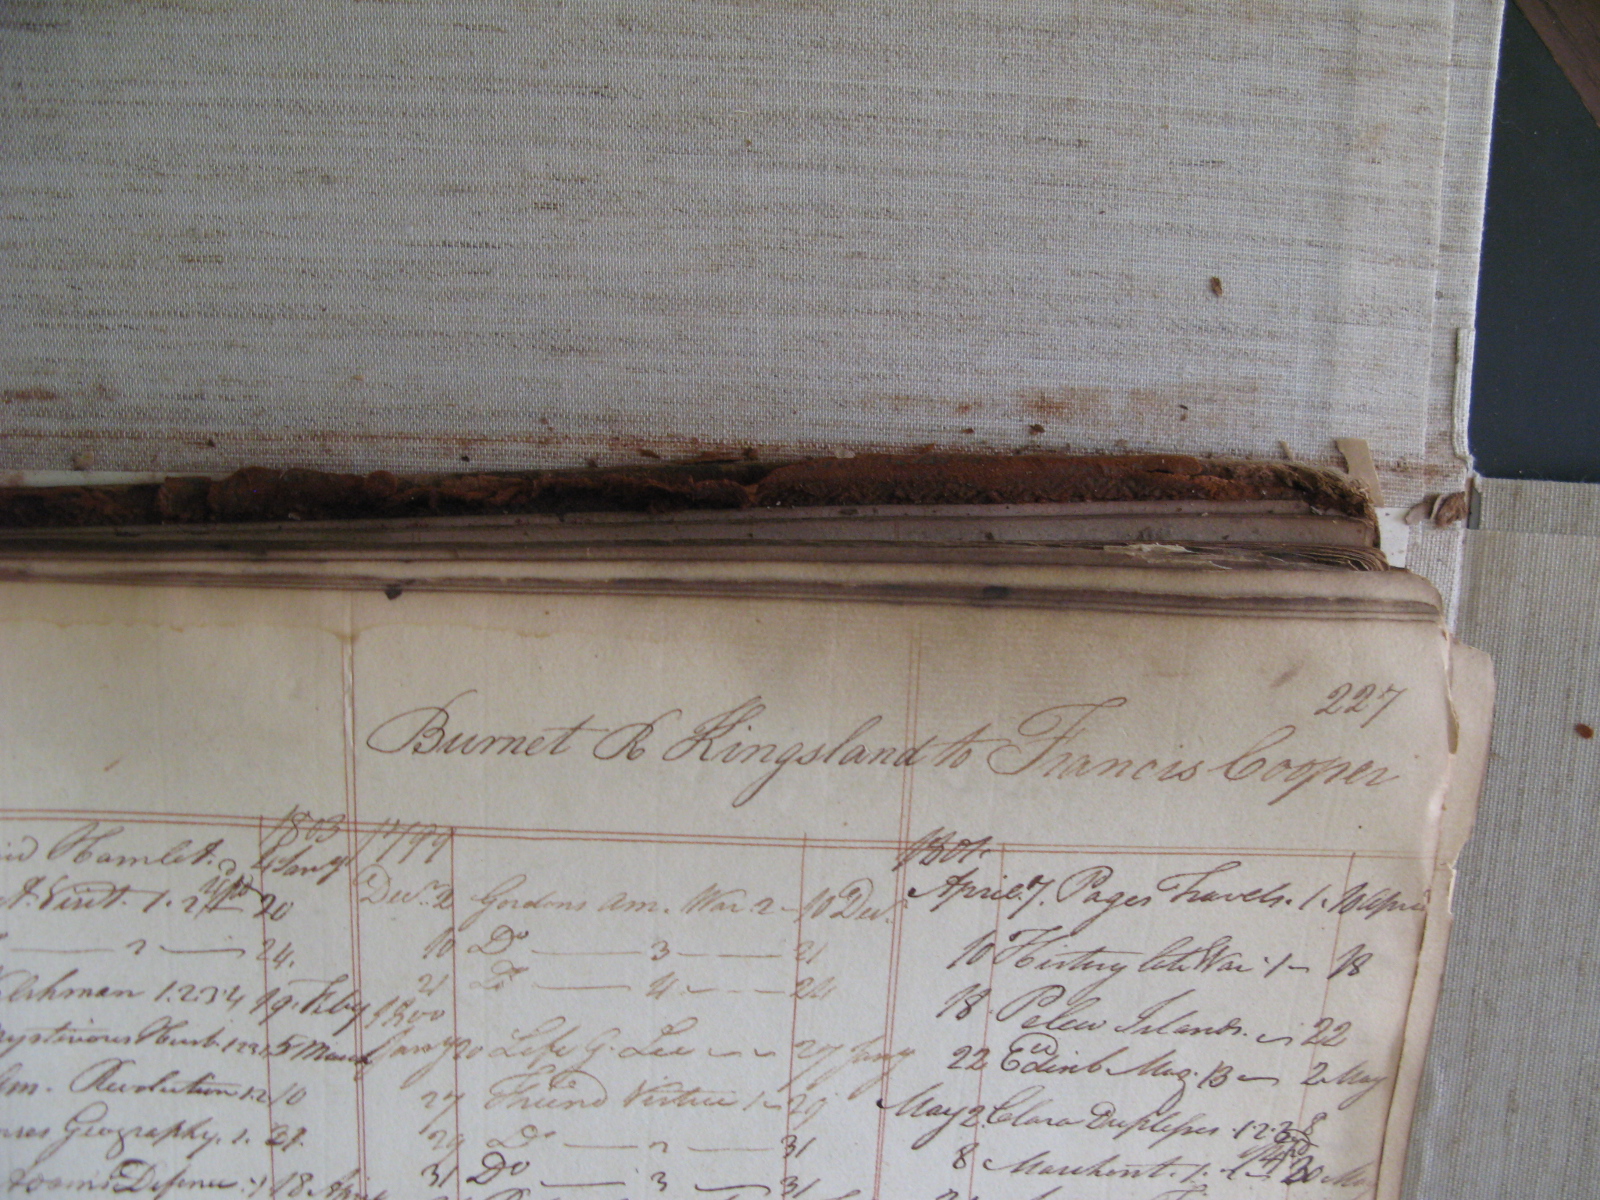 227
Burnet R Kingsland to Francis Cooper
Hamlet. 1803
1. 2 20
2 24.
1.2.3.4 19. Feby
Mysterious Husb. 1 2 3 5 March
Am. Revolution 1.2 10
Geography. 1.
Defence 18 April
1799
Decr. 2 Gordons Am. War. 2 10 Decr.
10 Do 3 21
21 Do 4 24
1800
Jany 20 Life G. Lee 27 Jany
27 Friend Virtue 1 29
29 Do 2 31
31 Do 3 31
1801.
April 7. Pages Travels. 1. 10 April
10 History late War. 1 18
18. Pelew Islands. 22
22 Edinb Mag. 13 2 May
May 2 Clara Duplessis 1.2.3 8
8 Marchmont. 1. 20 May